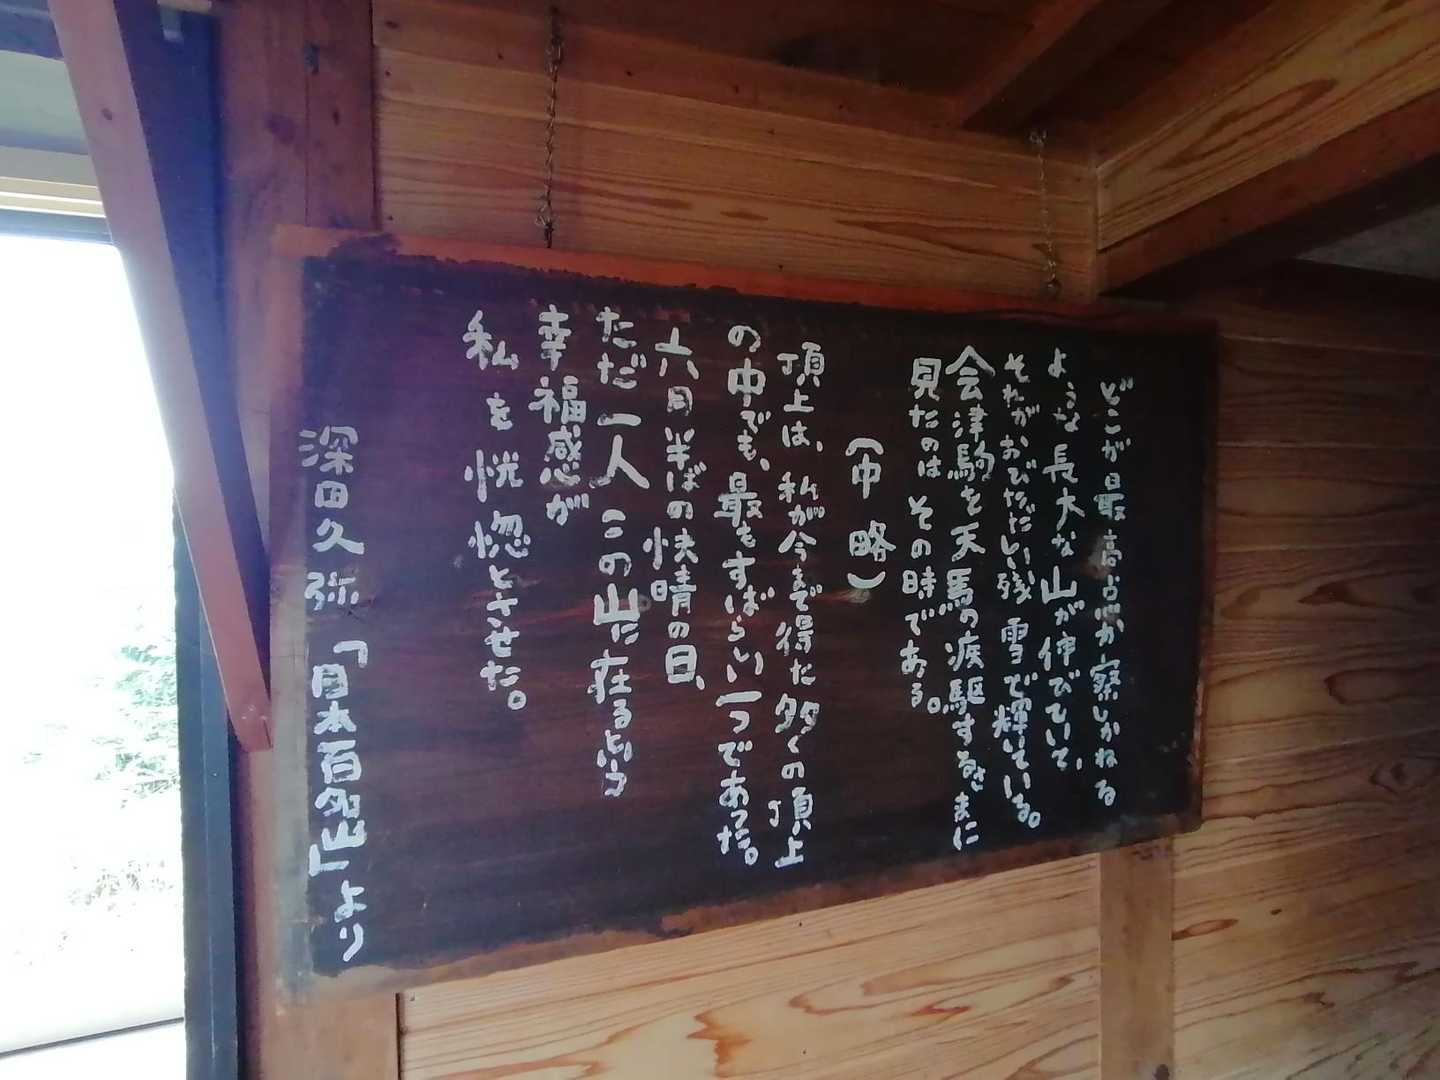 どこが最高点か察しかねる
ような長大な山が伸びていて、
それがおびただしい残雪で輝いている。
会津駒を天馬の疾駆するさまに
見たのはその時である。
(中略)
頂上は、私が今まで得た多くの頂上
の中でも、最もすばらしい一つであった。
六月半ばの快晴の日、
ただ一人この山に在るという
幸福感が
私を恍惚とさせた。
深田久弥「日本百名山」より